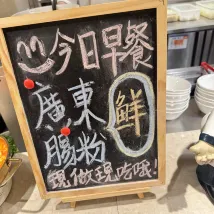 今日早餐
廣東
腸粉
鮮
現做現吃哦!